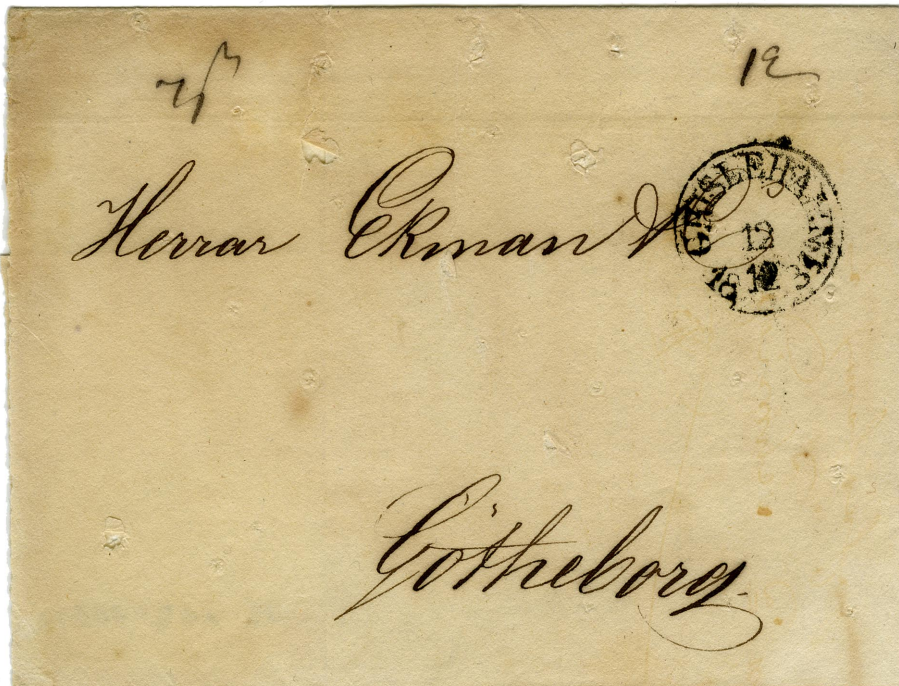 12
Herrar Ekman
GRISLEHAMN
12
12
Götheborg.